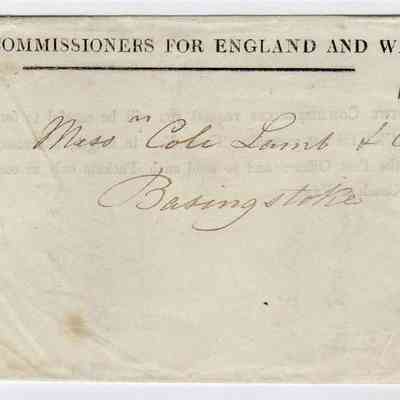 COMMISSIONERS FOR ENGLAND AND W
Mess rs Cole Lamb & C
Basingstoke